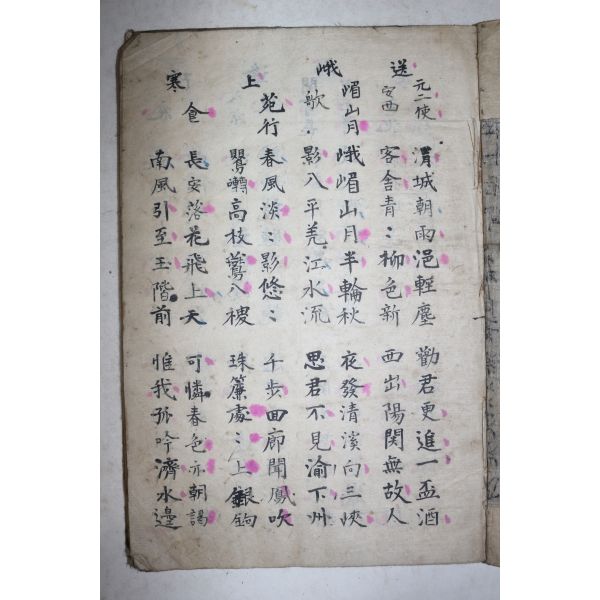 送元二使安西
渭城朝雨浥輕塵 勸君更進一盃酒
客舍青〻柳色新 西出陽関無故人
峨嵋山月歌
峨嵋山月半輪秋 夜發清溪向三峽
影入平羌江水流 思君不見渝下州
上苑行
春風淡〻影悠〻 千步回廊聞鳳吹
鶯囀高枝鷰入樓 珠簾處〻上銀鉤
寒食
長安落花飛上天 可憐春色亦朝謁
南風引至玉階前 惟我孤吟濟水邊